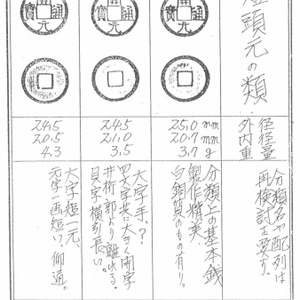 短頭元の類
分類名や配列は
再検討を要す。
外径 25.0 mm
内径 20.7 mm
重量 3.7 g
分類上の基本銭
製作精美、
白銅質のもの有り。
24.5
21.0
3.5
大字手。?
四文字共、大きく、開字
井桁郭より離れる。
貝字横引長い。
24.5
20.5
4.3
大字短一元。
元字一画短い。仰通。